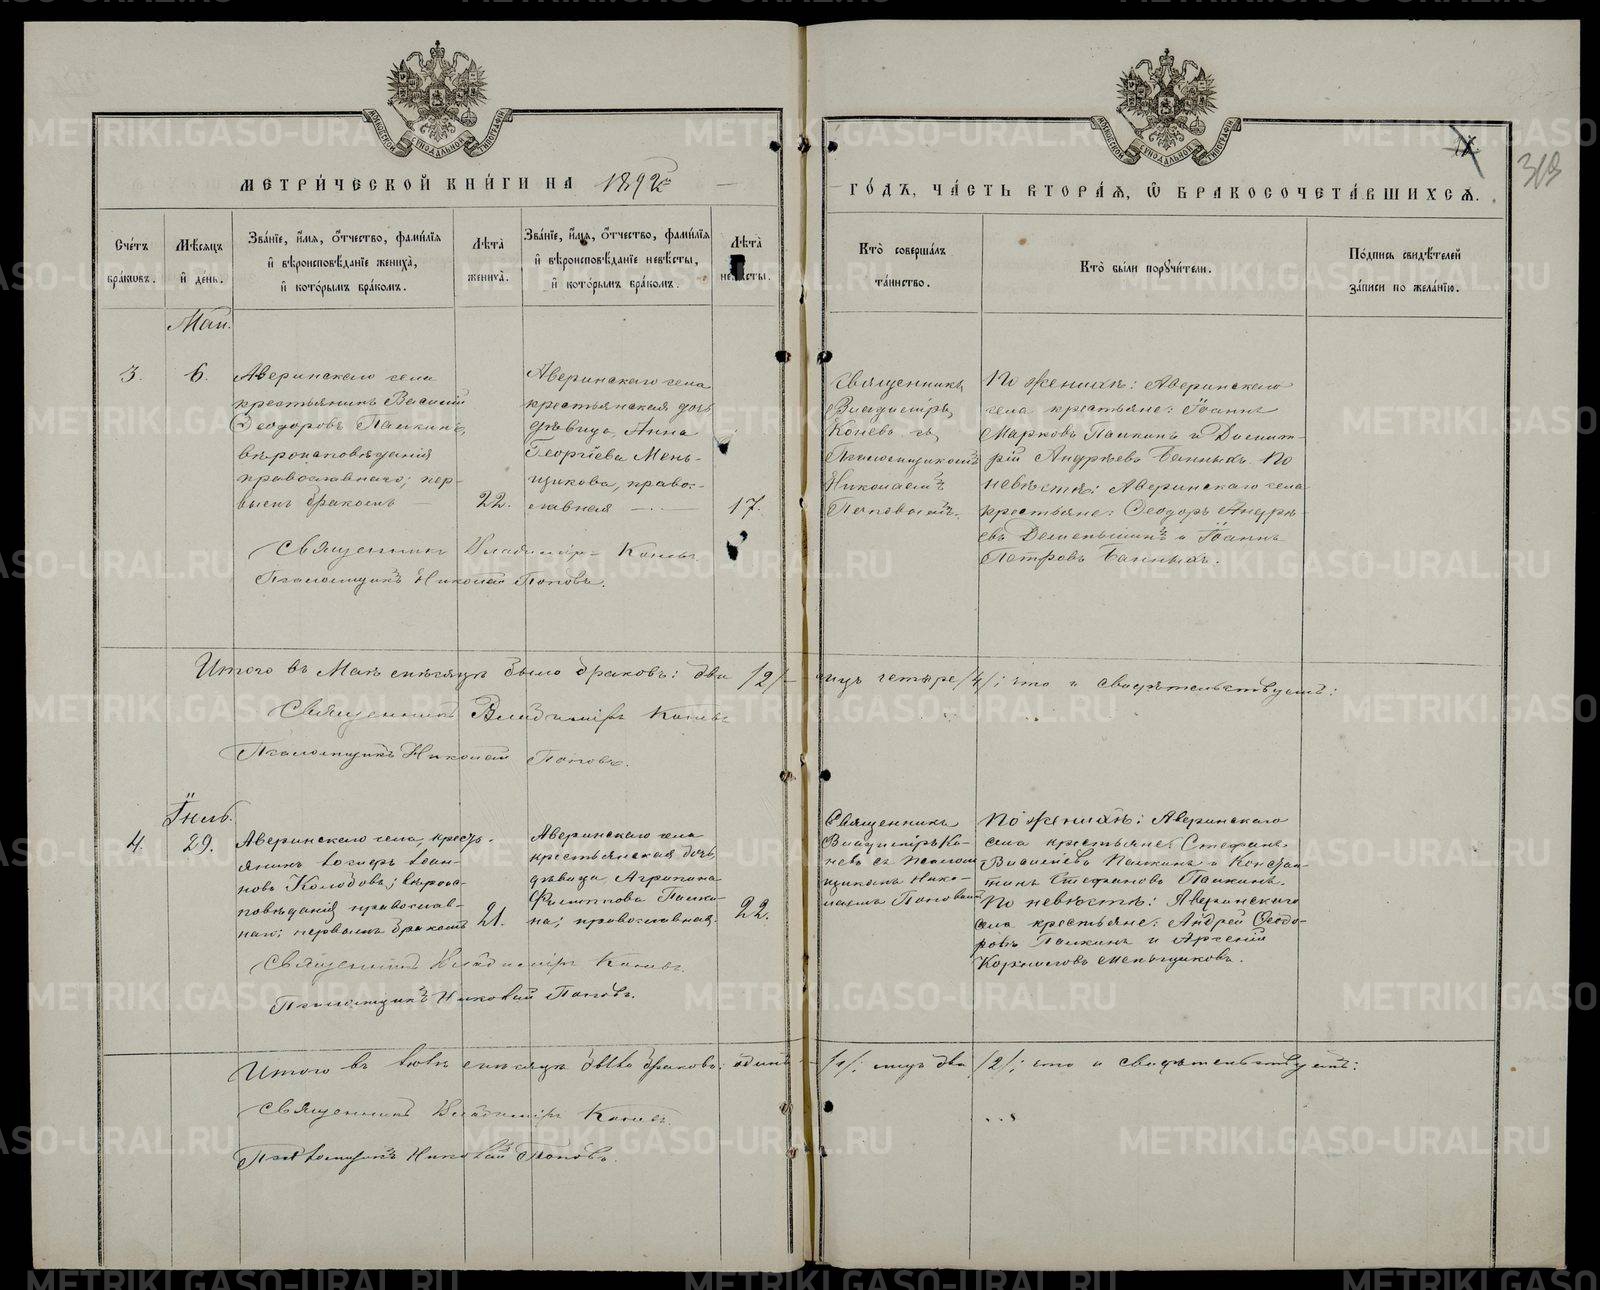 МЕТРИ́ЧЕСКОЙ КНИ́ГИ НА 1892й
ГО́ДЪ, ЧА́СТЬ ВТОРА́Я, Ѽ БРАКОСОЧЕТА́ВШИХСЯ.
313
Сче́тъ бра́ковъ.
Мѣ́сяцъ и де́нь.
Зва́нїе, и́мя, о́тчество, фами́лїя и вѣроисповѣ́данїе жениха̀, и кото́рымъ бра́комъ.
Лѣта̀ жениха̀.
Зва́нїе, и́мя, о́тчество, фами́лїя и вѣроисповѣ́данїе невѣ́сты, и кото́рымъ бра́комъ.
Лѣта̀ невѣ́сты.
Кто̀ соверша́лъ та́инство.
Кто̀ бы́ли поручи́тели.
По́дпись свидѣ́телей за́писи по жела́нїю.
Май.
3.
6.
Аверинскаго села
крестьянинъ Василій
Ѳеодоровъ Пашкинъ,
вѣроисповѣданія
православнаго; пер-
вымъ бракомъ
22.
Аверинскаго села
крестьянская дочь
дѣвица, Анна
Георгіева Мень-
щикова, правос-
лавная
17.
Священникъ
Владиміръ
Коневъ съ
Псаломщикомъ
Николаемъ
Поповымъ.
По женихѣ: Аверинскаго
села крестьяне: Іоаннъ
Марковъ Пашкинъ и Димит-
рій Андреевъ Банныхъ. По
невѣстѣ: Аверинскаго села
крестьяне: Ѳеодоръ Андре-
евъ Дементьевъ и Іоаннъ
Петровъ Банныхъ.
Священникъ Владиміръ Коневъ
Псаломщикъ Николай Поповъ.
Итого въ Маѣ мѣсяцѣ было браковъ: два /2/ лицъ четыре /4/; что и свидѣтельствуемъ:
Священникъ Владиміръ Коневъ
Псаломщикъ Николай Поповъ.
Іюль.
4.
29.
Аверинскаго села, кресть-
янинъ Іосифъ Іоан-
новъ Колобовъ; вѣроис-
повѣданія православ-
наго; первымъ бракомъ
21.
Аверинскаго села
крестьянская дочь
дѣвица, Агрипина
Филиппова Пашки-
на; православная.
22.
Священникъ
Владиміръ Ко-
невъ съ псалом-
щикомъ Нико-
лаемъ Поповымъ
По женихѣ: Аверинскаго
села крестьяне: Стефанъ
Васильевъ Пашкинъ и Констан-
тинъ Стефановъ Пашкинъ.
По невѣстѣ: Аверинскаго
села крестьяне: Андрей Ѳеодо-
ровъ Пашкинъ и Арсеній
Корниловъ Меньщиковъ.
Священникъ Владиміръ Коневъ.
Псаломщикъ Николай Поповъ.
Итого въ Іюлѣ мѣсяцѣ было браковъ: одинъ /1/; лицъ два /2/; что и свидѣтельствуемъ:
Священникъ Владиміръ Коневъ.
Псаломщикъ Николай Поповъ.
METRIKI.GASO-URAL.RU